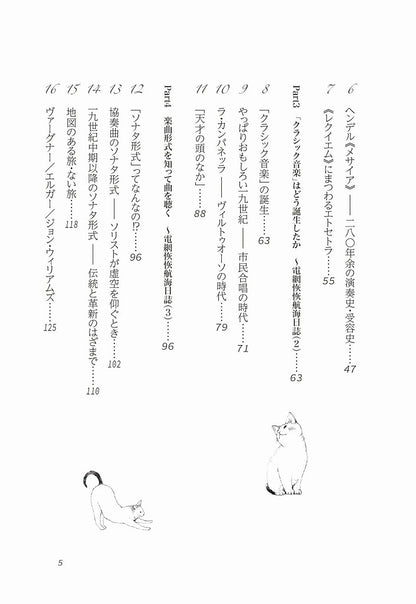 6 ヘンデル《メサイア》 —— 二八〇年余の演奏史・受容史……47
7 《レクイエム》にまつわるエトセトラ……55
Part3 「クラシック音楽」はどう誕生したか 〜電網恢恢航海日誌(2)……63
8 「クラシック音楽」の誕生……63
9 やっぱりおもしろい一九世紀 —— 市民合唱の時代……71
10 ラ・カンパネッラ —— ヴィルトゥオーソの時代……79
11 「天才の頭のなか」……88
Part4 楽曲形式を知って曲を聴く 〜電網恢恢航海日誌(3)……96
12 「ソナタ形式」ってなんなの!?……96
13 協奏曲のソナタ形式 —— ソリストが虚空を仰ぐとき……102
14 一九世紀中期以降のソナタ形式 —— 伝統と革新のはざまで……110
15 地図のある旅・ない旅……118
16 ヴァーグナー／エルガー／ジョン・ウィリアムズ……125
5